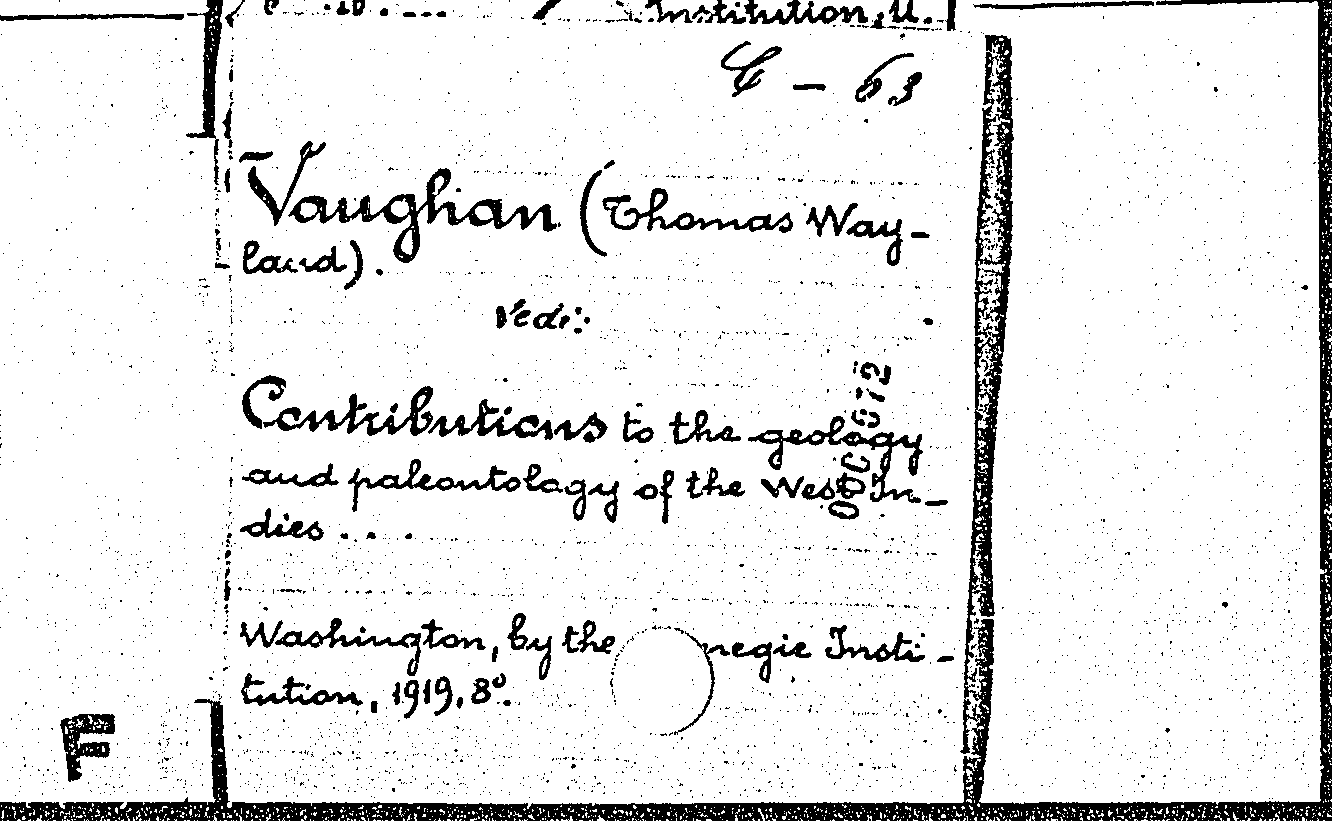 Institution, U.
G - 63
Vaughan (Thomas Way-
land).
Vedi:
Contributions to the geology
and paleontology of the West In-
dies . . .
000672
Washington, by the negie Insti-
tution, 1919, 8º.
F